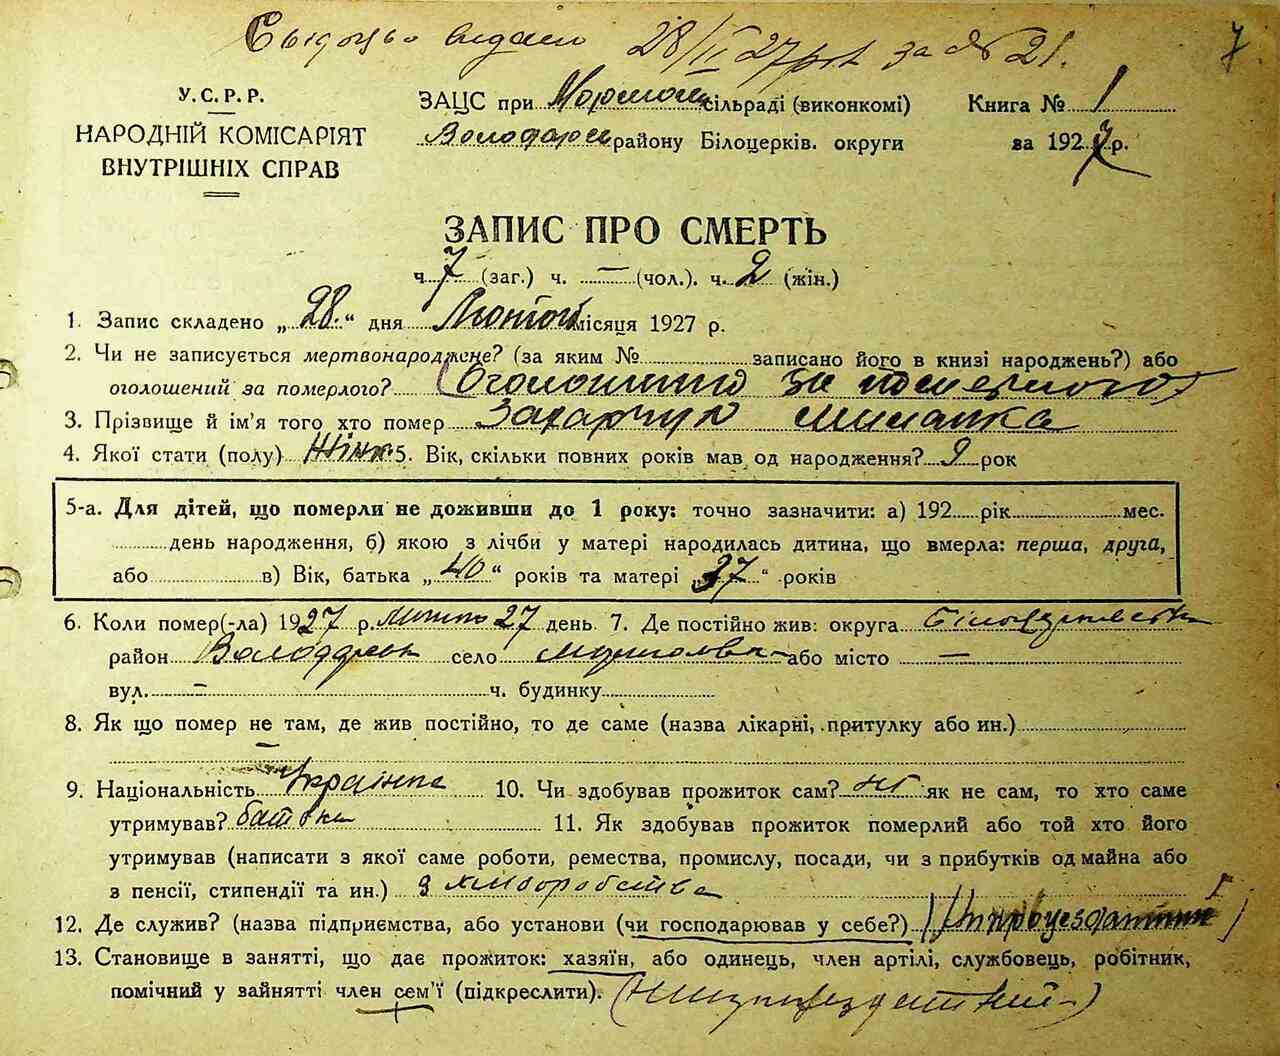 видано 28/II 27 р за № 21.
7
У.С.Р.Р.
НАРОДНІЙ КОМІСАРІЯТ
ВНУТРІШНІХ СПРАВ
ЗАЦС при сільраді (виконкомі)
Володарск району Білоцерків. округи
Книга № 1
за 1927 р.
ЗАПИС ПРО СМЕРТЬ
ч. 7 (заг.) ч. — (чол.). ч. 2 (жін.)
1. Запис складено „ 28. “ дня Лютого місяця 1927 р.
2. Чи не записується мертвонароджене? (за яким № записано його в книзі народжень?) або
оголошений за померлого? (Оголошений за померлого)
3. Прізвище й ім'я того хто помер Захарчук
4. Якої стати (полу) Жінк 5. Вік, скільки повних років мав од народження? 9 рок
5-а. Для дітей, що померли не доживши до 1 року: точно зазначити: а) 192 рік мес.
день народження, б) якою з лічби у матері народилась дитина, що вмерла: перша, друга,
або в) Вік, батька „ 40 “ років та матері „ 37 “ років
6. Коли помер(-ла) 1927 р. лютого 27 день 7. Де постійно жив: округа Білоцерківська
район Володарськ село або місто —
вул. — ч. будинку
8. Як що помер не там, де жив постійно, то де саме (назва лікарні, притулку або ин.)
—
9. Національність Українка 10. Чи здобував прожиток сам? ні як не сам, то хто саме
утримував? батьки 11. Як здобував прожиток померлий або той хто його
утримував (написати з якої саме роботи, ремества, промислу, посади, чи з прибутків од майна або
з пенсії, стипендії та ин.) З хліборобства
12. Де служив? (назва підприємства, або установи (чи господарював у себе?)
13. Становище в занятті, що дає прожиток: хазяїн, або одинець, член артілі, службовець, робітник,
помічний у зайнятті член сем'ї (підкреслити).